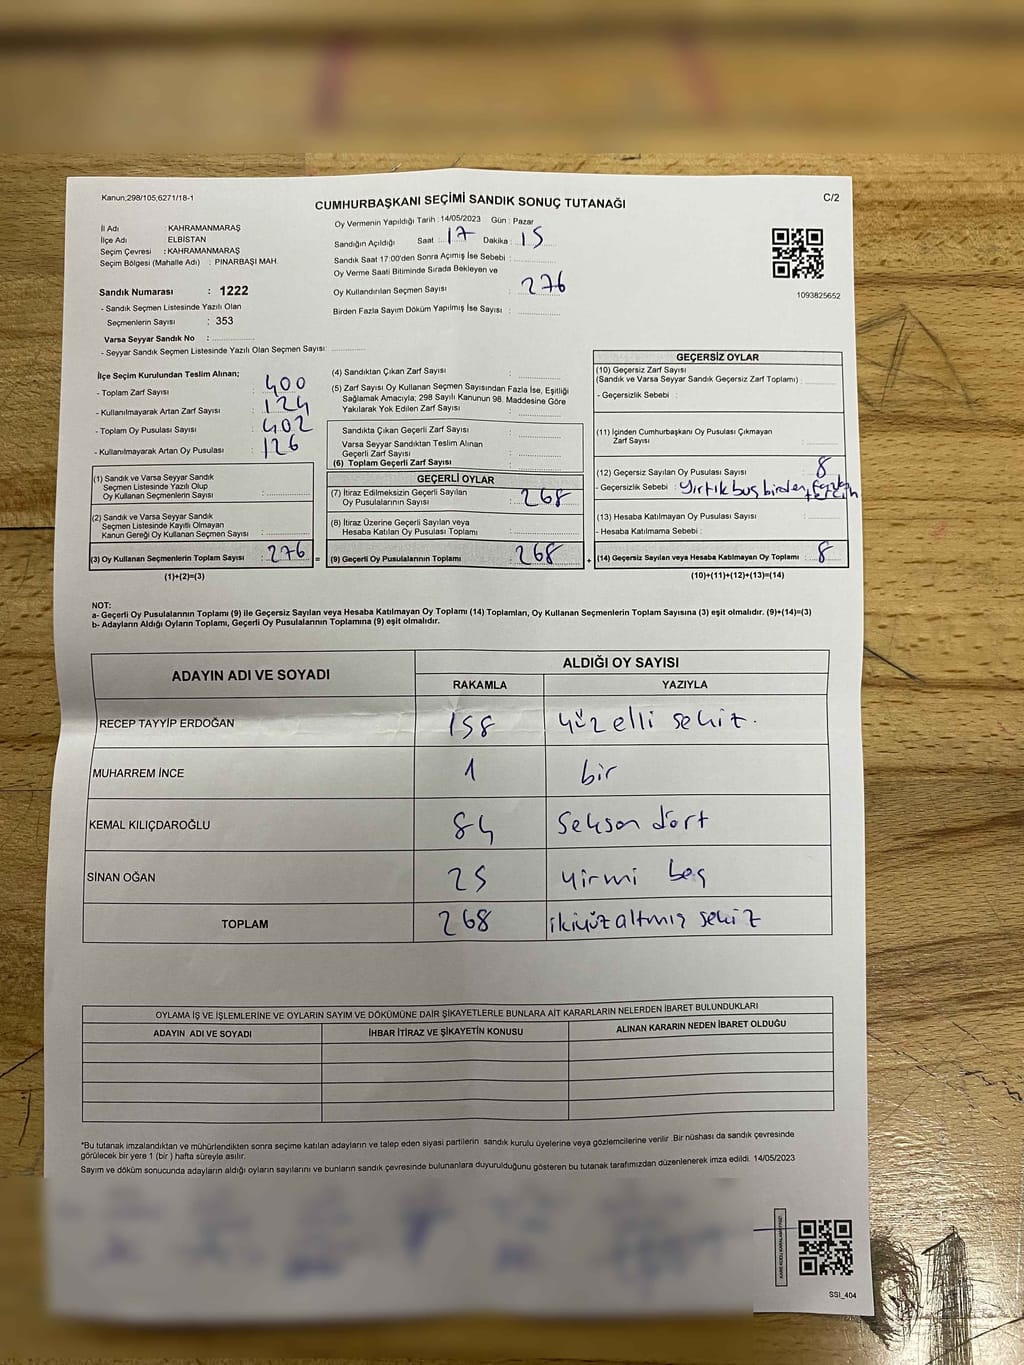 Kanun;298/105,6271/18-1
CUMHURBAŞKANI SEÇİMİ SANDIK SONUÇ TUTANAĞI
C/2
İl Adı : KAHRAMANMARAŞ
İlçe Adı : ELBİSTAN
Seçim Çevresi : KAHRAMANMARAŞ
Seçim Bölgesi (Mahalle Adı) : PINARBAŞI MAH.
Sandık Numarası : 1222
- Sandık Seçmen Listesinde Yazılı Olan
Seçmenlerin Sayısı : 353
Varsa Seyyar Sandık No :
- Seyyar Sandık Seçmen Listesinde Yazılı Olan Seçmen Sayısı:
Oy Vermenin Yapıldığı Tarih : 14/05/2023 Gün : Pazar
Sandığın Açıldığı Saat : 17 Dakika : 15
Sandık Saat 17:00'den Sonra Açımış İse Sebebi :
Oy Verme Saati Bitiminde Sırada Bekleyen ve
Oy Kullandırılan Seçmen Sayısı : 276
Birden Fazla Sayım Döküm Yapılmış İse Sayısı :
1093825652
İlçe Seçim Kurulundan Teslim Alınan;
- Toplam Zarf Sayısı : 400
- Kullanılmayarak Artan Zarf Sayısı : 124
- Toplam Oy Pusulası Sayısı : 402
- Kullanılmayarak Artan Oy Pusulası : 126
(1) Sandık ve Varsa Seyyar Sandık
Seçmen Listesinde Yazılı Olup
Oy Kullanan Seçmenlerin Sayısı :
(2) Sandık ve Varsa Seyyar Sandık
Seçmen Listesinde Kayıtlı Olmayan
Kanun Gereği Oy Kullanan Seçmen Sayısı :
(3) Oy Kullanan Seçmenlerin Toplam Sayısı : 276 =
(1)+(2)=(3)
(4) Sandıktan Çıkan Zarf Sayısı :
(5) Zarf Sayısı Oy Kullanan Seçmen Sayısından Fazla İse, Eşitliği
Sağlamak Amacıyla; 298 Sayılı Kanunun 98. Maddesine Göre
Yakılarak Yok Edilen Zarf Sayısı :
Sandıkta Çıkan Geçerli Zarf Sayısı :
Varsa Seyyar Sandıktan Teslim Alınan
Geçerli Zarf Sayısı :
(6) Toplam Geçerli Zarf Sayısı :
GEÇERLİ OYLAR
(7) İtiraz Edilmeksizin Geçerli Sayılan
Oy Pusulalarının Sayısı : 268
(8) İtiraz Üzerine Geçerli Sayılan veya
Hesaba Katılan Oy Pusulası Toplamı :
(9) Geçerli Oy Pusulalarının Toplamı : 268 +
GEÇERSİZ OYLAR
(10) Geçersiz Zarf Sayısı
(Sandık ve Varsa Seyyar Sandık Geçersiz Zarf Toplamı) :
- Geçersizlik Sebebi :
(11) İçinden Cumhurbaşkanı Oy Pusulası Çıkmayan
Zarf Sayısı :
(12) Geçersiz Sayılan Oy Pusulası Sayısı : 8
- Geçersizlik Sebebi : Yırtık boş birden fazla
tercih
(13) Hesaba Katılmayan Oy Pusulası Sayısı :
- Hesaba Katılmama Sebebi :
(14) Geçersiz Sayılan veya Hesaba Katılmayan Oy Toplamı : 8
(10)+(11)+(12)+(13)=(14)
NOT:
a- Geçerli Oy Pusulalarının Toplamı (9) ile Geçersiz Sayılan veya Hesaba Katılmayan Oy Toplamı (14) Toplamları, Oy Kullanan Seçmenlerin Toplam Sayısına (3) eşit olmalıdır. (9)+(14)=(3)
b- Adayların Aldığı Oyların Toplamı, Geçerli Oy Pusulalarının Toplamına (9) eşit olmalıdır.
ADAYIN ADI VE SOYADI
ALDIĞI OY SAYISI
RAKAMLA YAZIYLA
RECEP TAYYİP ERDOĞAN 158 yüzelli sekiz.
MUHARREM İNCE 1 bir
KEMAL KILIÇDAROĞLU 84 Seksen dört
SİNAN OĞAN 25 yirmi beş
TOPLAM 268 ikiyüzaltmış sekiz
OYLAMA İŞ VE İŞLEMLERİNE VE OYLARIN SAYIM VE DÖKÜMÜNE DAİR ŞİKAYETLERLE BUNLARA AİT KARARLARIN NELERDEN İBARET BULUNDUKLARI
ADAYIN ADI VE SOYADI İHBAR İTİRAZ VE ŞİKAYETİN KONUSU ALINAN KARARIN NEDEN İBARET OLDUĞU
*Bu tutanak imzalandıktan ve mühürlendikten sonra seçime katılan adayların ve talep eden siyasi partilerin sandık kurulu üyelerine veya gözlemcilerine verilir. Bir nüshası da sandık çevresinde
görülecek bir yere 1 (bir ) hafta süreyle asılır.
Sayım ve döküm sonucunda adayların aldığı oyların sayılarını ve bunların sandık çevresinde bulunanlara duyurulduğunu gösteren bu tutanak tarafımızdan düzenlenerek imza edildi. 14/05/2023
SSI_404